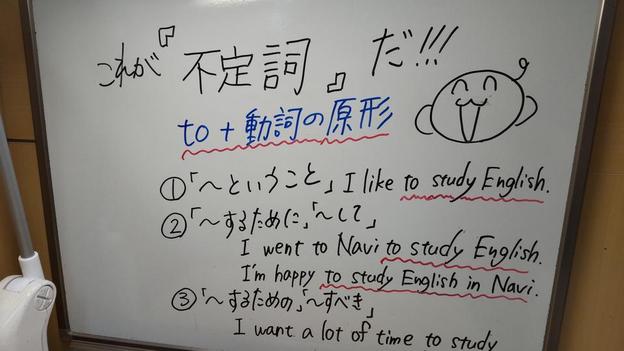 これが『不定詞』だ!!!
to + 動詞の原形
①「～ということ」 I like to study English.
②「～するために」,「～して」
I went to Navi to study English.
I'm happy to study English in Navi.
③「～するための」,「～すべき」
I want a lot of time to study